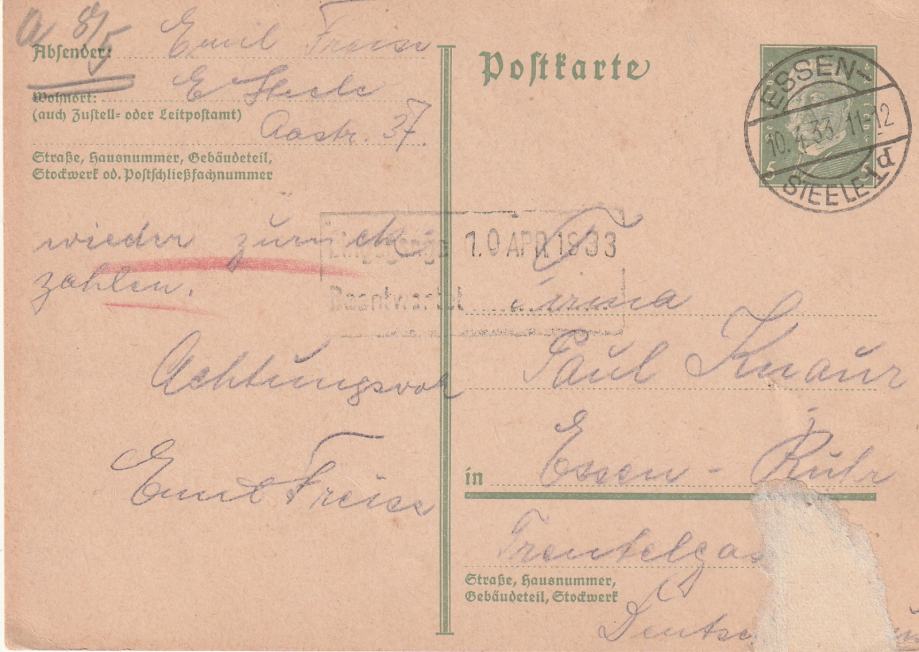 a 8/5
Absender: Emil Freise
Wohnort: E Steele
(auch Zustell- oder Leitpostamt)
Aastr. 37.
Straße, Hausnummer, Gebäudeteil,
Stockwerk od. Postschließfachnummer
wieder zurück
zahlen.
Achtungsvoll
Emil Freise
Postkarte
ESSEN-
10.4.33. 11-12
STEELE 1 d
5 5
Eingegangen 10 APR 1933
Beantwortet
Firma
Paul Knaur
in Essen - Ruhr
Straße, Hausnummer,
Gebäudeteil, Stockwerk